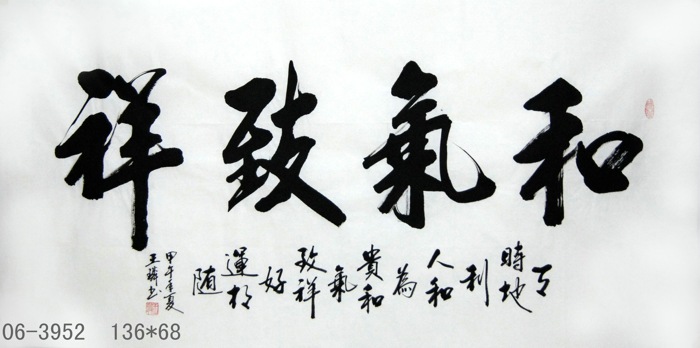 和氣致祥
天
時地
利
人和
為
貴和
氣
致祥
好
運相
随
甲午年夏
06-3952 136*68